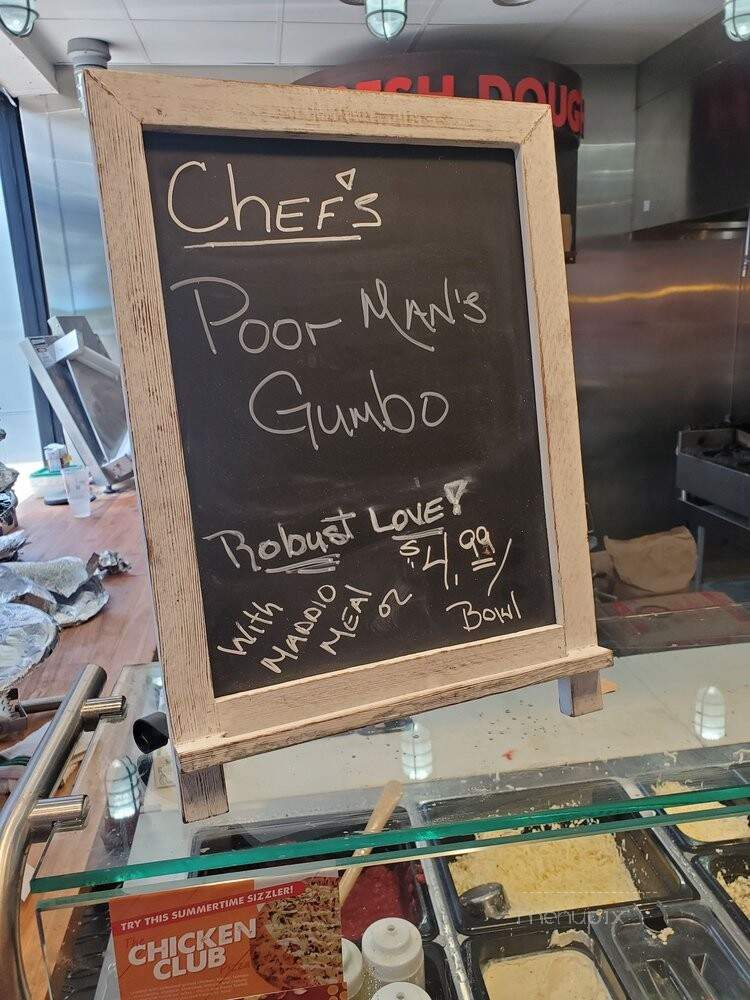 FRESH DOUGH
CHEF'S
Poor MAN'S
Gumbo
Robust LOVE!
With MADDIO MEAL or
$4.99/
BOWL
TRY THIS SUMMERTIME SIZZLER!
CHICKEN
CLUB
menupix